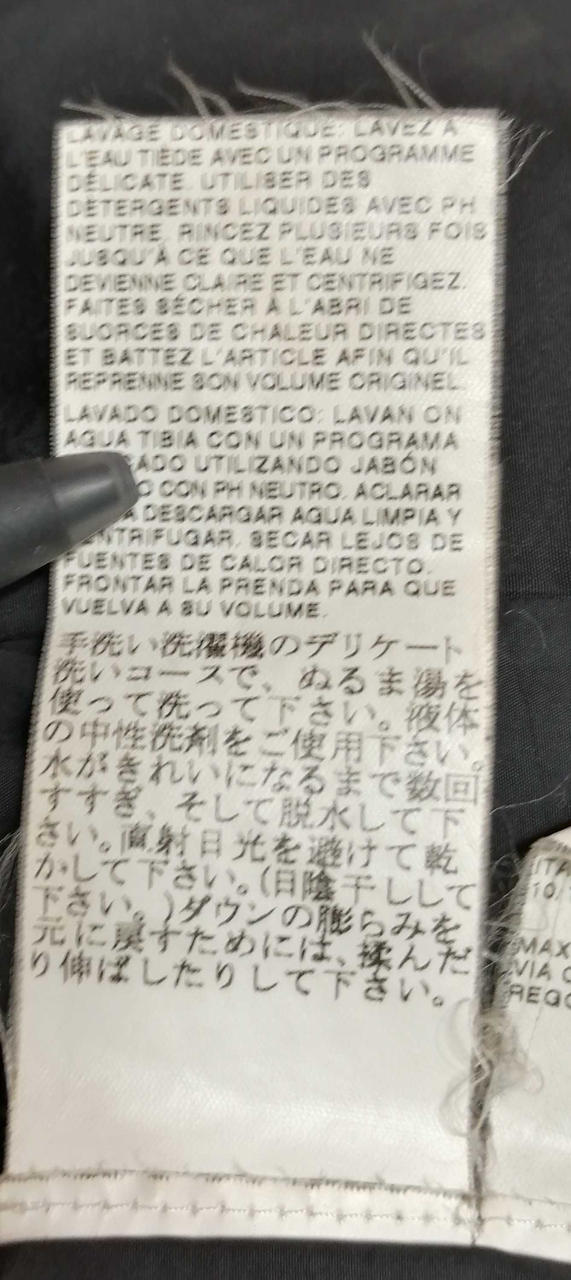 LAVAGE DOMESTIQUE: LAVEZ A
L'EAU TIÈDE AVEC UN PROGRAMME
DÉLICATE. UTILISER DES
DÉTERGENTS LIQUIDES AVEC PH
NEUTRE. RINCEZ PLUSIEURS FOIS
JUSQU'À CE QUE L'EAU NE
DEVIENNE CLAIRE ET CENTRIFIGEZ.
FAITES SÉCHER À L'ABRI DE
SUORCES DE CHALEUR DIRECTES
ET BATTEZ L'ARTICLE AFIN QU'IL
REPRENNE SON VOLUME ORIGINEL.
LAVADO DOMESTICO: LAVAN ON
AGUA TIBIA CON UN PROGRAMA
CADO UTILIZANDO JABÓN
O CON PH NEUTRO. ACLARAR
A DESCARGAR AGUA LIMPIA Y
ENTRIFUGAR. SECAR LEJOS DE
FUENTES DE CALOR DIRECTO.
FRONTAR LA PRENDA PARA QUE
VUELVA A SU VOLUME.
手洗い洗濯機のデリケート
洗いコースで、ぬるま湯を
使って洗って下さい。液体
の中性洗剤をご使用下さい。
水がきれいになるまで数回
すすぎ、そして脱水して下
さい。直射日光を避けて乾
かして下さい。(日陰干しして
下さい。)ダウンの膨らみを
元に戻すためには、揉んだ
り伸ばしたりして下さい。
ITA
10/
MAX
VIA C
REGG